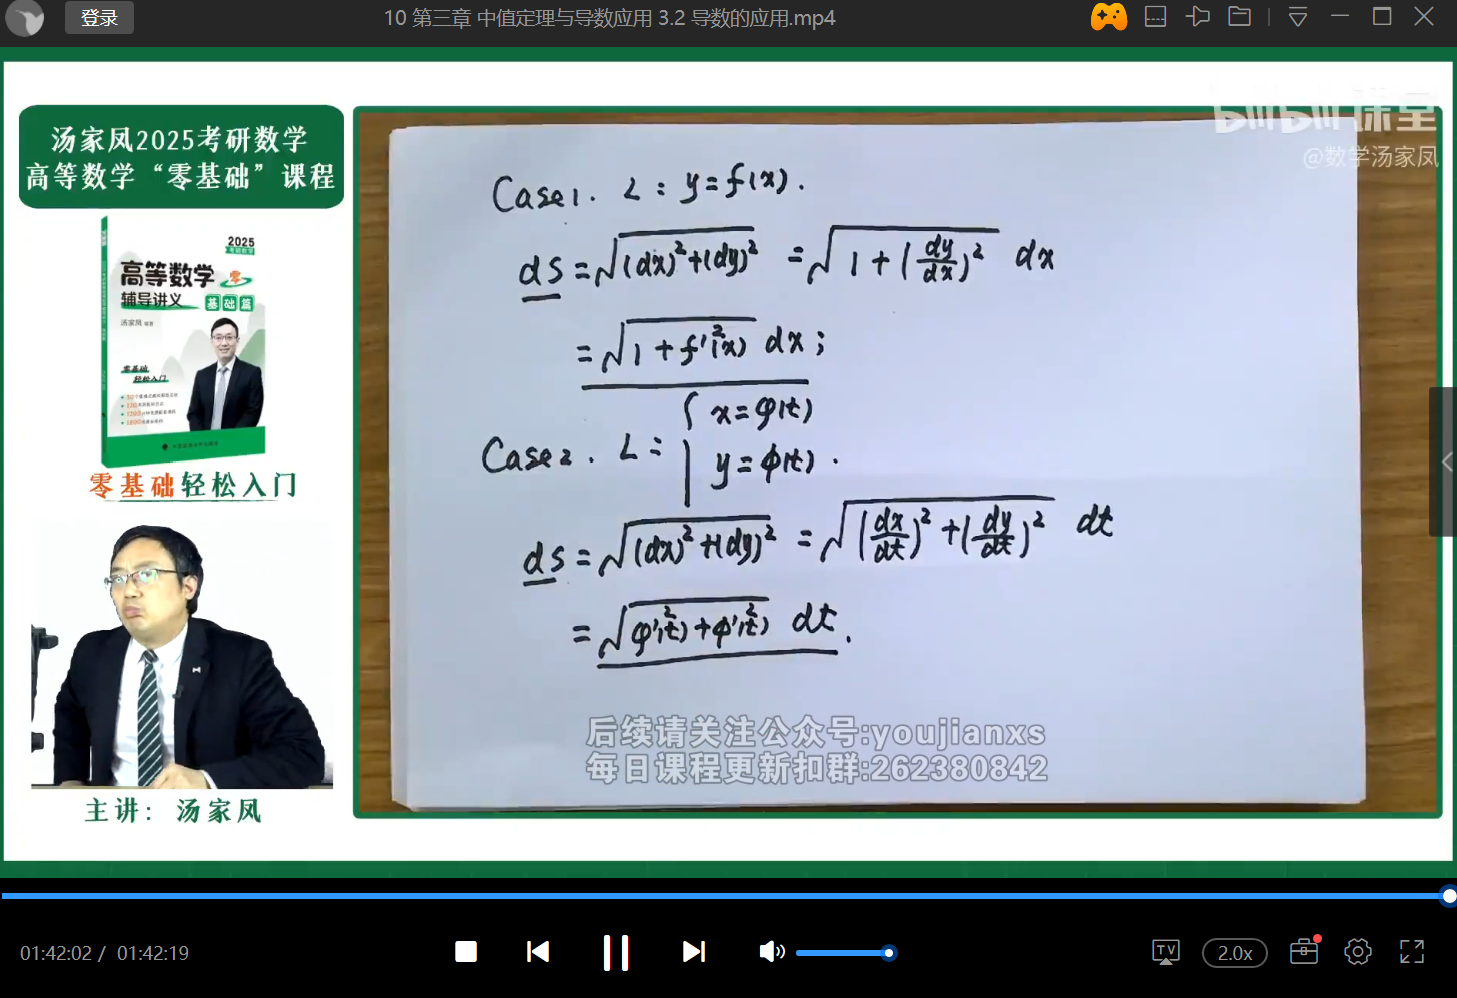 登录
10 第三章 中值定理与导数应用 3.2 导数的应用.mp4
汤家凤2025考研数学
高等数学“零基础”课程
2025
高等数学 零
辅导讲义 基础篇
汤家凤 编著
零基础
轻松入门
零基础轻松入门
主讲：汤家凤
bilibili课堂
@数学汤家凤
Case1. L: y=f(x).
ds=√((dx)²+(dy)²) =√(1+(dy/dx)²) dx
=√(1+f'²(x)) dx;
Case2. L: { x=φ(t)
y=ϕ(t).
ds=√((dx)²+(dy)²) =√((dx/dt)²+(dy/dt)²) dt
=√(φ'²(t)+ϕ'²(t)) dt.
后续请关注公众号:youjianxs
每日课程更新扣群:262380842
01:42:02 / 01:42:19
TV
2.0x